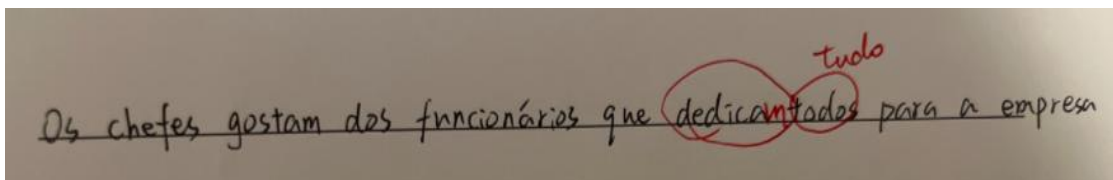 tudo
Os chefes gostam dos funcionários que dedicam todos para a empresa